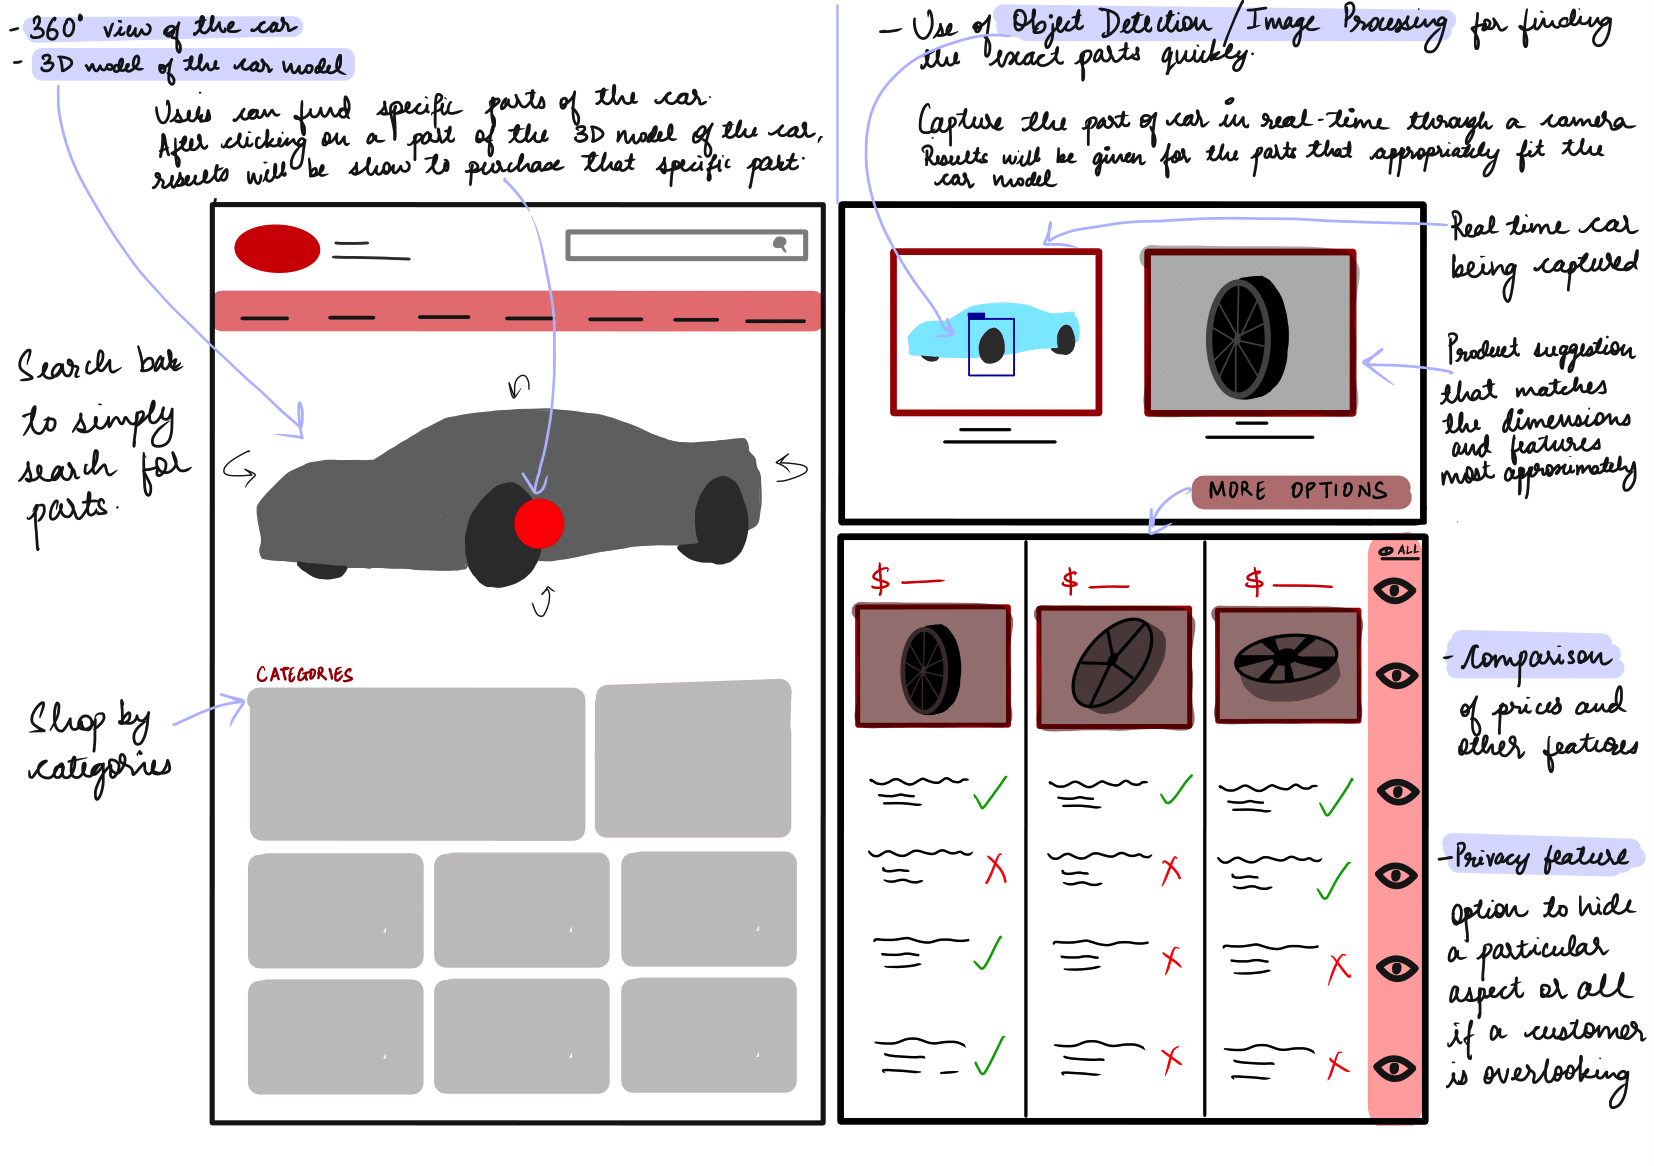 - 360° view of the car
- 3D model of the car model
Users can find specific parts of the car.
After clicking on a part of the 3D model of the car,
results will be show to purchase that specific part.
Search bar
to simply
search for
parts.
CATEGORIES
Shop by
categories
- Use of Object Detection / Image Processing for finding
the exact parts quickly.
Capture the part of car in real-time through a camera
Results will be given for the parts that appropriately fit the
car model
Real time car
being captured
Product suggestion
that matches
the dimensions
and features
most approximately
MORE OPTIONS
ALL
$
$
$
- Comparison
of prices and
other features
- Privacy feature
option to hide
a particular
aspect or all
if a customer
is overlooking